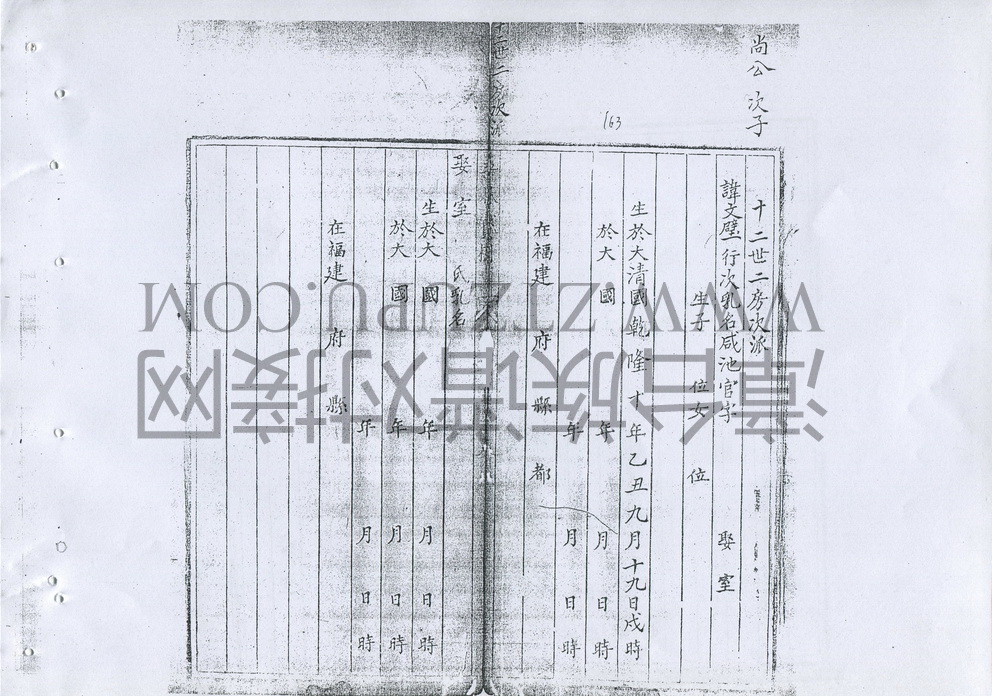 尚公 次子
163
十二世二房次派
諱文璧 行次乳名咸池官字 娶室
生子 位女 位
生於大清國乾隆十年乙丑九月十九日戌時
於大 國 年 月 日 時
年 月 日 時
在福建 府 縣 都
十世二房次派
娶室 氏乳名
生於大 國 年 月 日 時
於大 國 年 月 日 時
年 月 日 時
在福建 府 縣
漳台族谱对接网
WWW.ZTZUPU.COM